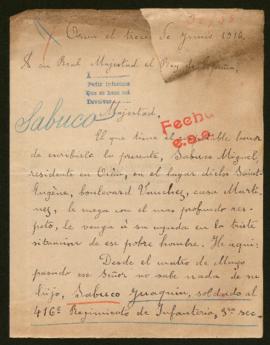 Oran el trece de Junio 1916.
A su Real Majestad el Rey de España,
A
Pedir informes
Que se hace así
Devolver
Majestad,
Sabuco
Fecho
El que tiene el honor
de escribirla la presente, Sabuco Miguel,
residente en Orán, en el lugar dicho Saint-
Eugène, boulevard casa Martí-
nez, le ruega con el mas profundo res-
peto, le venga á su ayuda en la triste
situacion de ese pobre hombre. He aqui:
Desde el cuatro de Mayo
pasado ese Señor no sabe nada de su
hijo, Sabuco Juaquin, soldado al
416º Regimiento de Infanteria, 3ra sec-